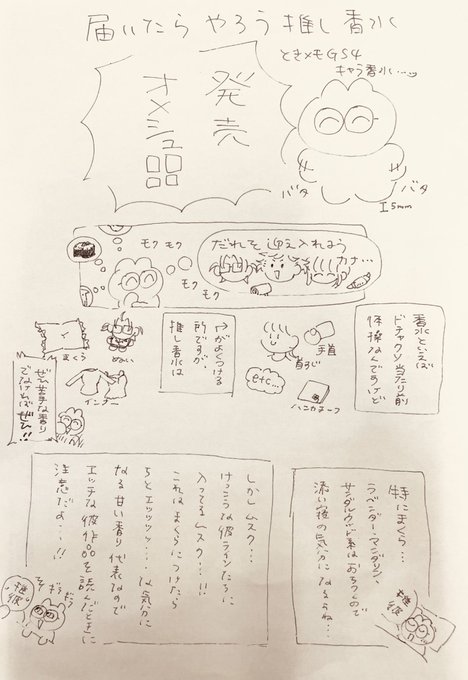 届いたら やろう 推し香水
発売
オメシュ品
ときメモGS4
キャラ香水…
バタ
バタ
5mm
モク モク
モク
モク
だれを 迎え入れよう
かナ…
香水といえば
ドチャクソ当たり前
体操なんですけど
手首
首すじ
etc…
ハンカチーフ
がよくつける
所ですが、
推し香水は
ぬい
まくら
インナー
ぜひ苦手な香り
でなければ ぜひ!!
特にまくら…
ラベンダー・マンダリン、
サンダルウッド系はおちつくので
添い寝の気分になるよね…
推し
彼
しかしムスク…
けっこうな彼ラインたちに
入ってるムスク…!!
これはまくらにつけたら
ちとエッッッッ…な気分に
なる甘い香り代表なので
エッチな彼作品を読んだときに
注意だよ…!!
推し
彼